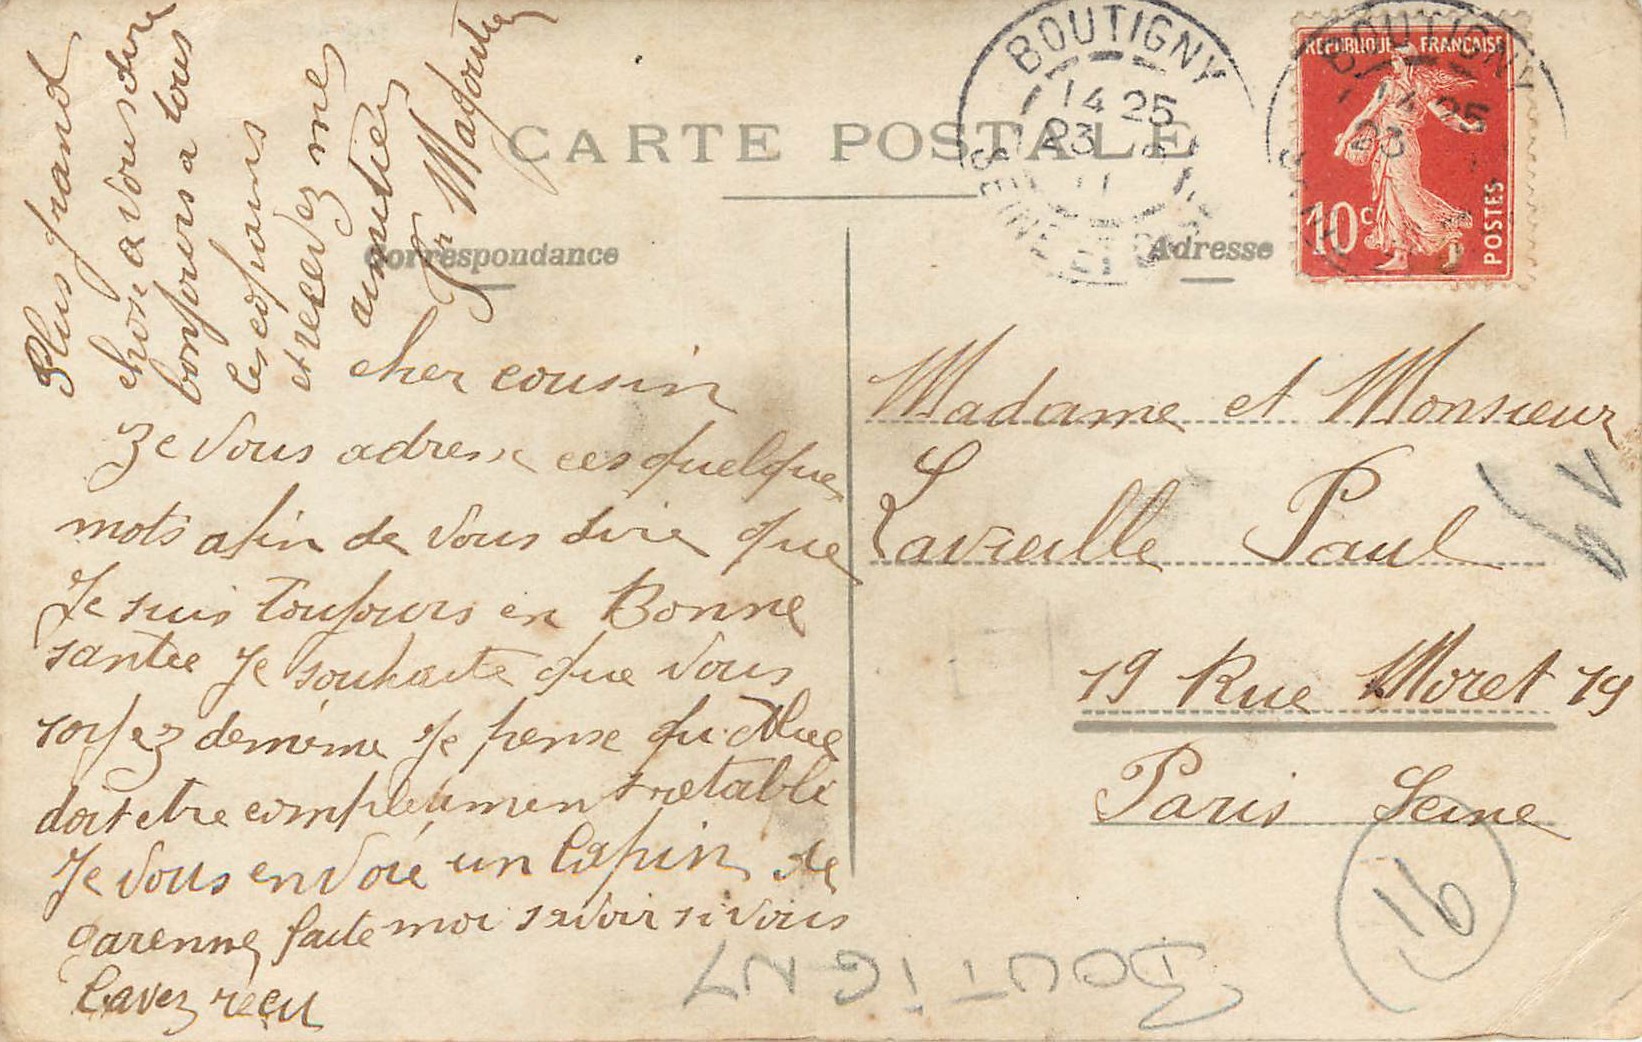 CARTE POSTALE
Correspondance
Adresse
BOUTIGNY
14 25
23
11
SEINE-ET-OISE
BOUTIGNY
14 25
23
REPUBLIQUE FRANÇAISE
10c
POSTES
cher cousin
Je vous adresse ces quelque
mots afin de vous dire que
Je suis toujours en Bonne
santée je souhaite que vous
soyez demême je pense qu'
doit etre complétement retabli
Je vous envoie un lapin de
garenne, faite moi savoir si vous
lavez recu
Plus grand
chose a vous dire
bonjours a tous
les copains
et recevez mes
amitier
Madame et Monsieur
Lavieille Paul
19 Rue Moret 19
Paris Seine
91
BOUTIGNY